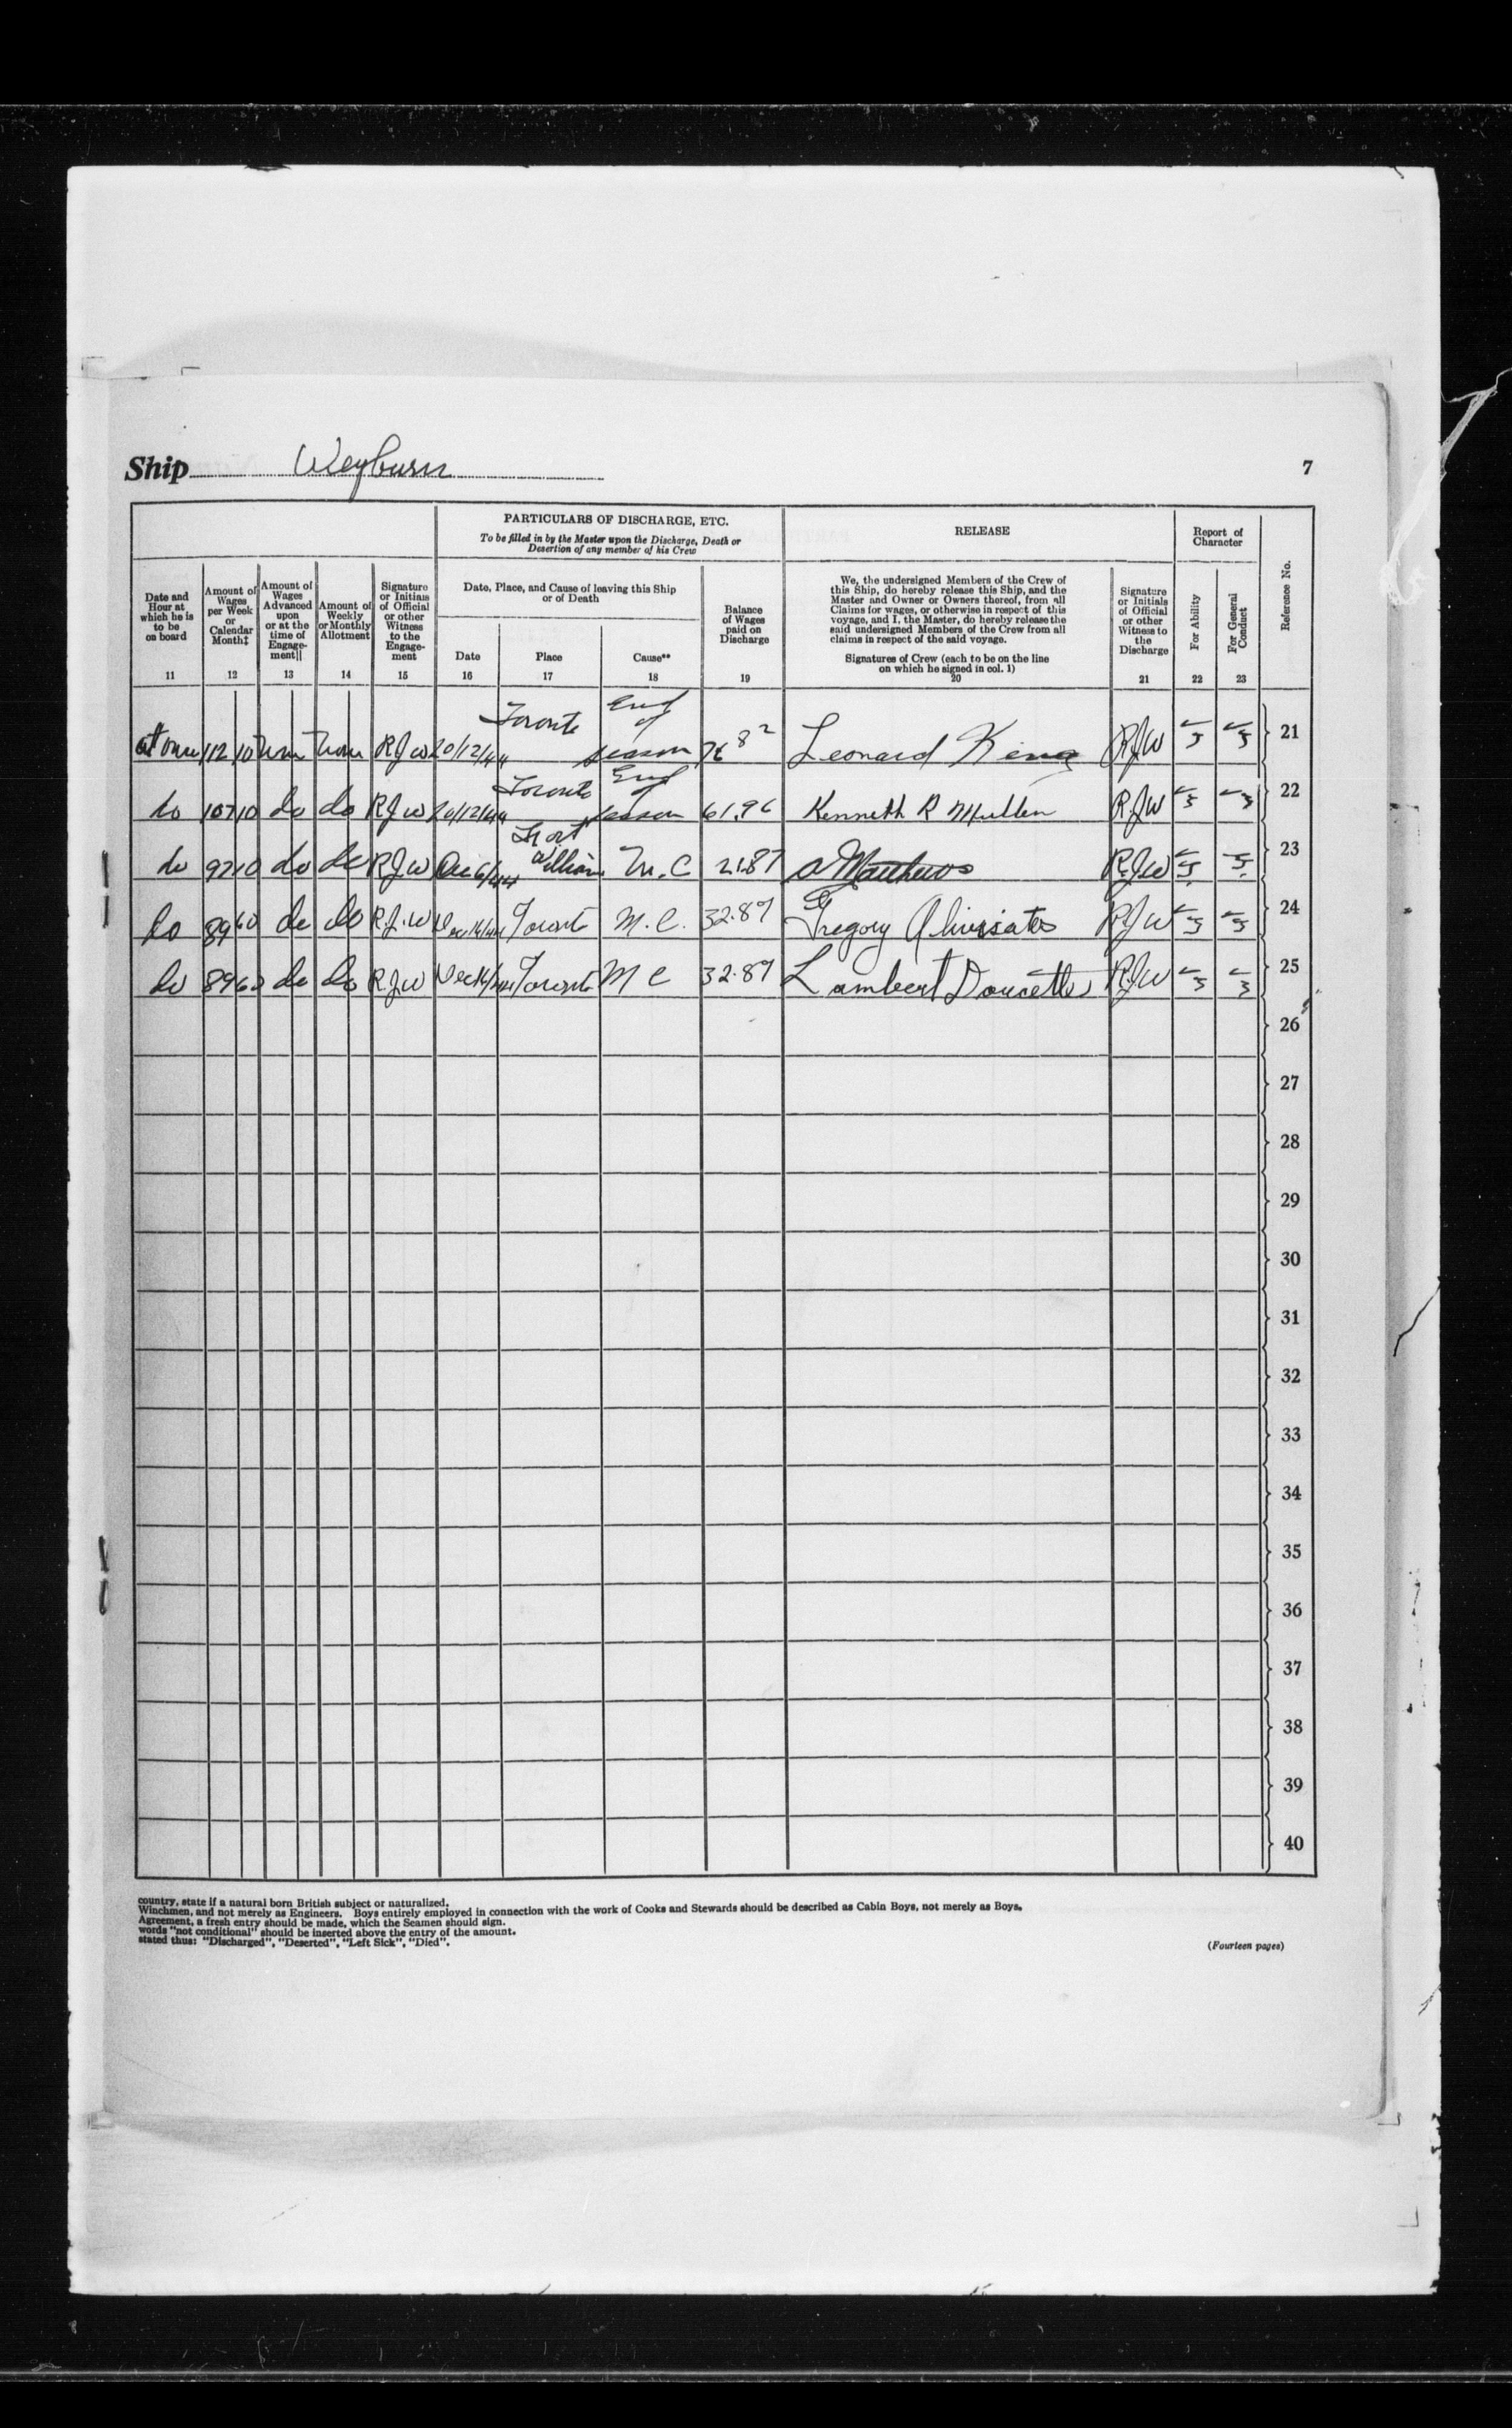 Ship Weyburn 7
PARTICULARS OF DISCHARGE, ETC.
To be filled in by the Master upon the Discharge, Death or
Desertion of any member of his Crew
RELEASE
Report of
Character
Reference No.
Date and
Hour at
which he is
to be
on board
11
Amount of
Wages
per Week
or
Calendar
Month‡
12
Amount of
Wages
Advanced
upon
or at the
time of
Engage-
ment||
13
Amount of
Weekly
or Monthly
Allotment
14
Signature
or Initials
of Official
or other
Witness
to the
Engage-
ment
15
Date, Place, and Cause of leaving this Ship
or of Death
Date
16
Place
17
Cause**
18
Balance
of Wages
paid on
Discharge
19
We, the undersigned Members of the Crew of
this Ship, do hereby release this Ship, and the
Master and Owner or Owners thereof, from all
Claims for wages, or otherwise in respect of this
voyage, and I, the Master, do hereby release the
said undersigned Members of the Crew from all
claims in respect of the said voyage.
Signatures of Crew (each to be on the line
on which he signed in col. 1)
20
Signature
or Initials
of Official
or other
Witness to
the
Discharge
21
For Ability
22
For General
Conduct
23
at once 112 10 None None RJW 20/12/44 Toronto End of season 76 82 Leonard King RJW 21
do 107 10 do do RJW 20/12/44 Toronto End of season 61.96 Kenneth R Mullen RJW 22
do 97 10 do do RJW Dec 6/44 Fort William M.C 21.87 A Matthews RJW 23
do 89 60 do do R.J.W Dec 16/44 Toronto M.C. 32.87 Gregory RJW 24
do 89 60 do do RJW Dec 16/44 Toronto M C 32.87 Lambert Doucette RJW 25
26
27
28
29
30
31
32
33
34
35
36
37
38
39
40
country, state if a natural born British subject or naturalized.
Winchmen, and not merely as Engineers. Boys entirely employed in connection with the work of Cooks and Stewards should be described as Cabin Boys, not merely as Boys.
Agreement, a fresh entry should be made, which the Seamen should sign.
words "not conditional" should be inserted above the entry of the amount.
stated thus: "Discharged", "Deserted", "Left Sick", "Died".
(Fourteen pages)